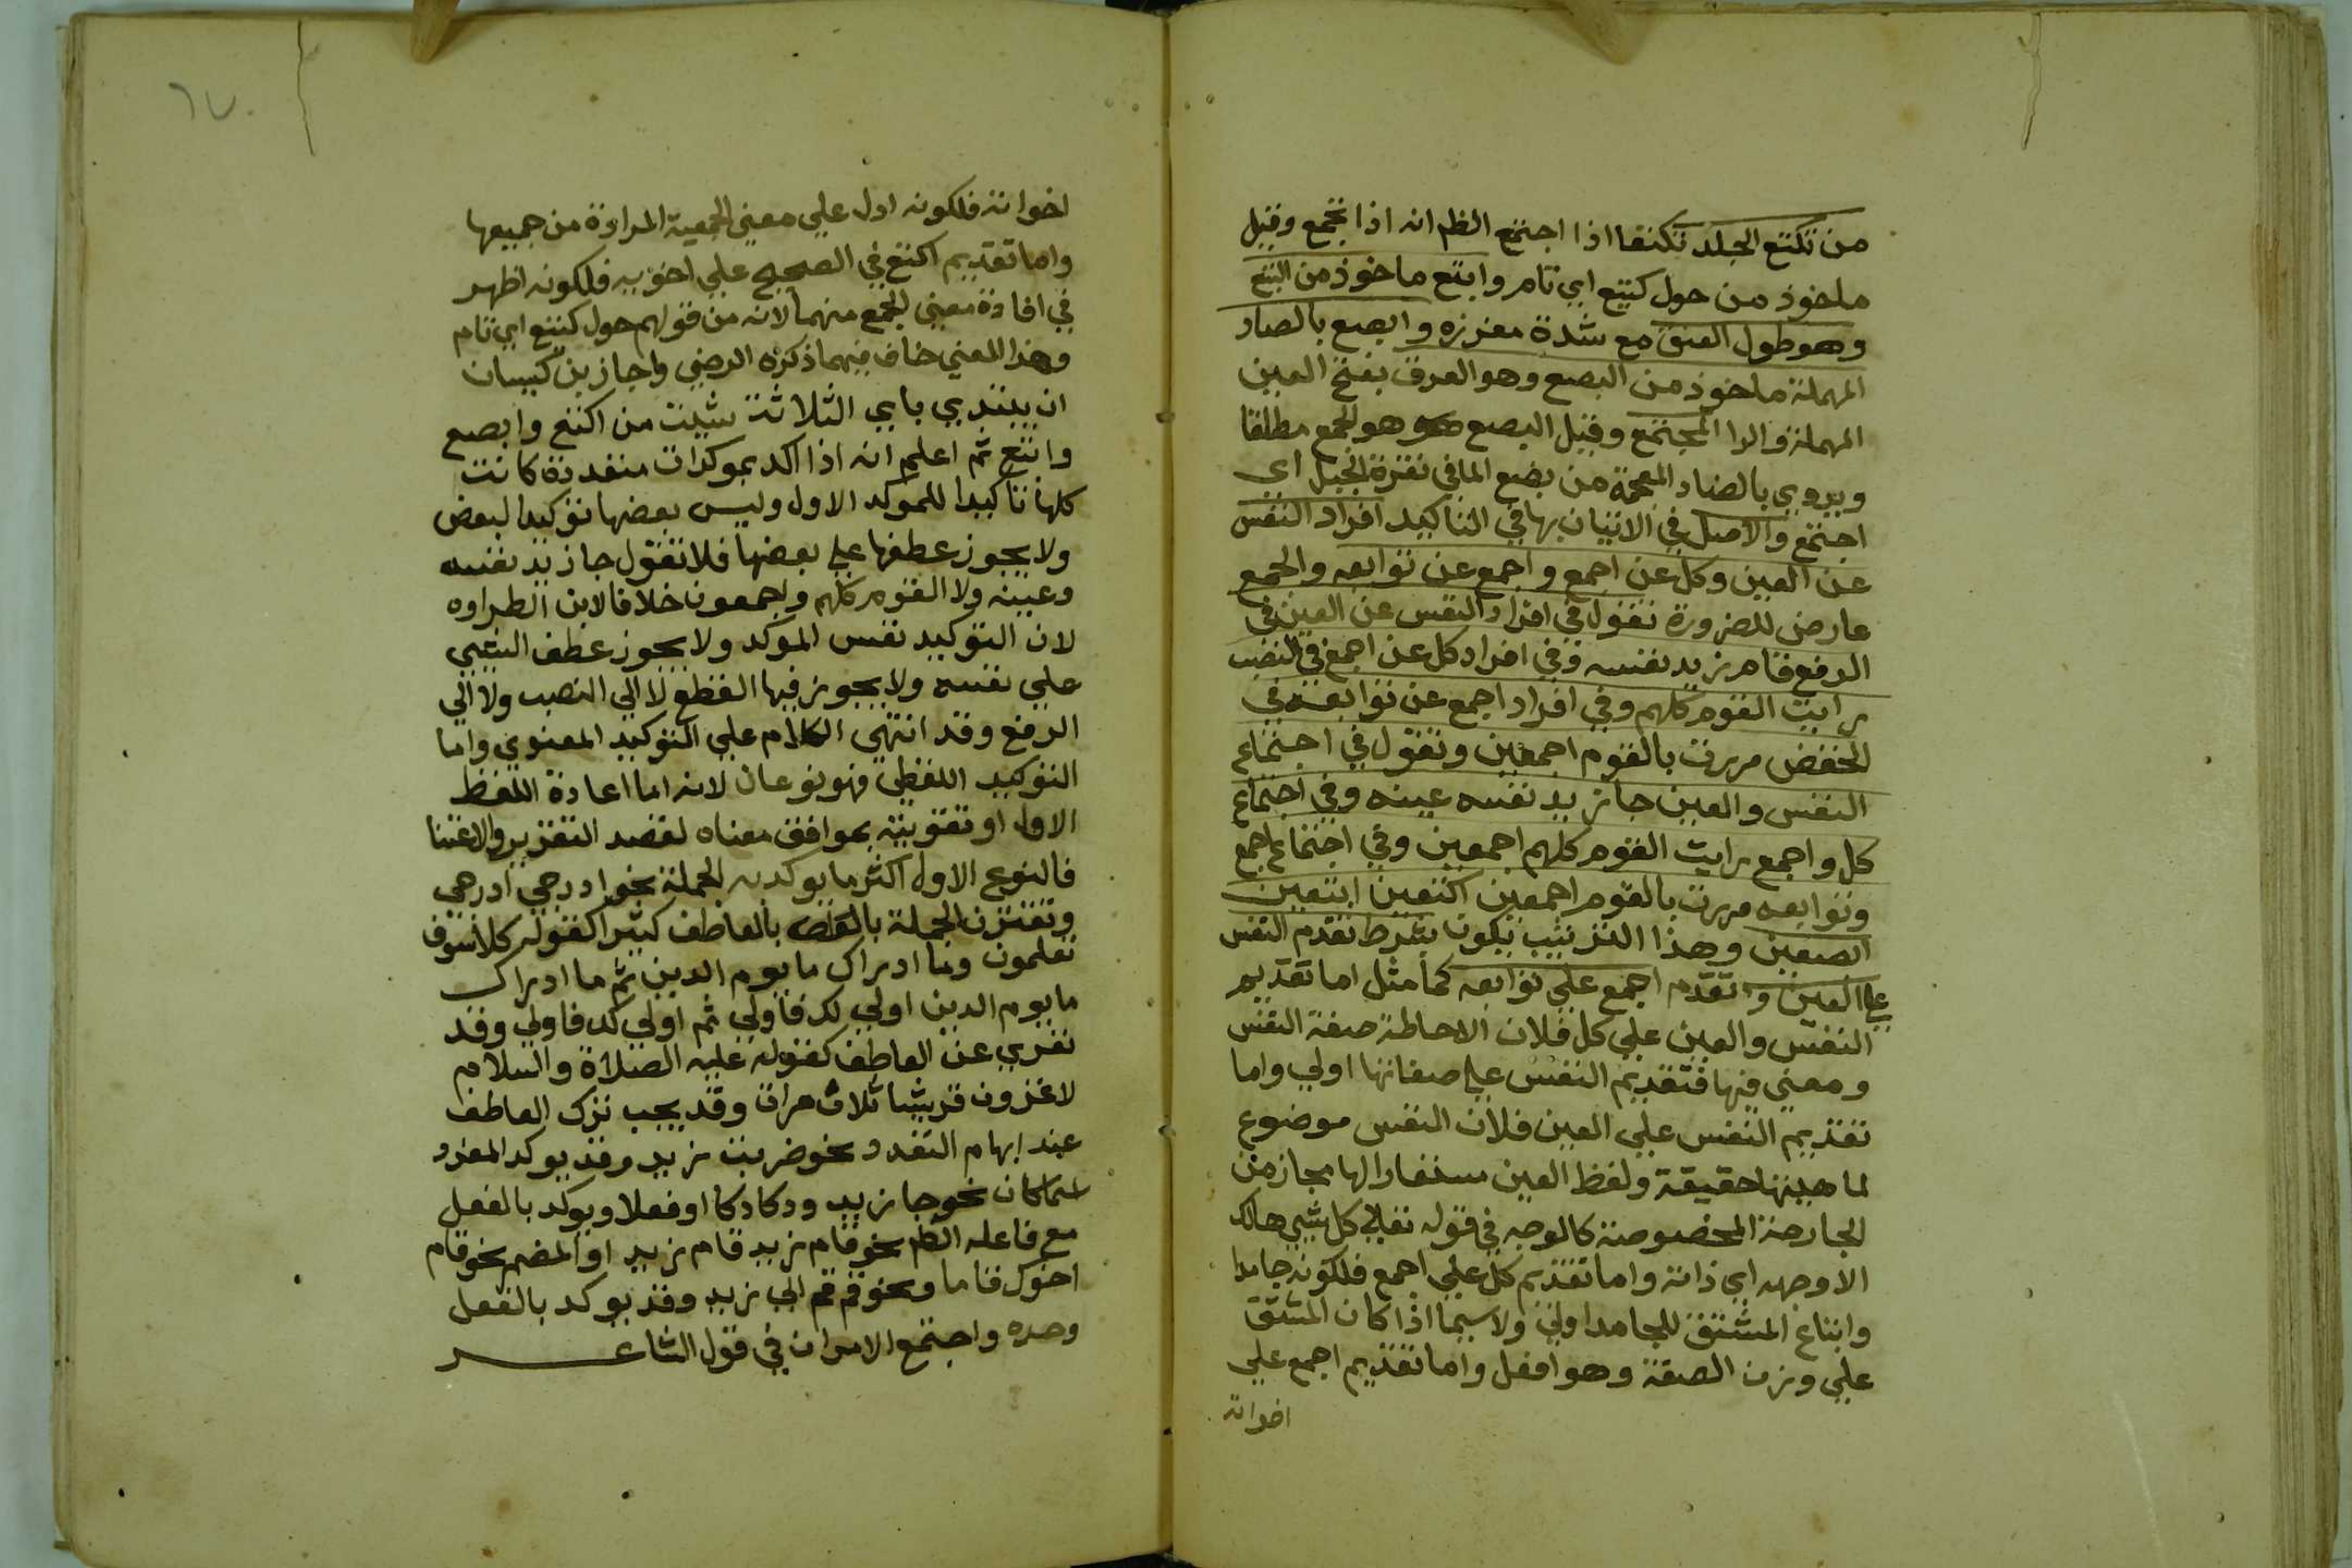 من تكتع الجلد تكتعا اذا اجتمع الظم انه اذا تجمع وقيل
ماخوذ من حول كتيع اي تام وابتع ماخوذ من البتع
وهو طول العنق مع شدة مغرزه وابصع بالصاد
المهملة ماخوذ من البصع وهو العرق بفتح العين
المهملة والرا المجتمع وقيل البصع هو الجمع مطلقا
ويروي بالضاد المعجمة من بضع الما في نقرة الجبل اي
اجتمع والاصل في الاتيان بها في التاكيد افراد النفس
عن العين وكل عن اجمع واجمع عن توابعه والجمع
عارض للضرورة تقول في افراد النفس عن العين في
الرفع قام زيد نفسه وفي افراد كل عن اجمع في النصب
رايت القوم كلهم وفي افراد اجمع عن توابعه في
الخفض مررت بالقوم اجمعين وتقول في اجتماع
النفس والعين جا زيد نفسه عينه وفي اجتماع
كل واجمع رايت القوم كلهم اجمعين وفي اجتماع اجمع
وتوابعه مررت بالقوم اجمعين اكتعين ابتعين
ابصعين وهذا الترتيب يكون بشرط تقدم النفس
علي العين وتقدم اجمع علي توابعه كما مثل اما تقديم
النفس والعين علي كل فلان الاحاطة صفة النفس
ومعني فيها فتقديم النفس علي صفاتها اولي واما
تقديم النفس علي العين فلان النفس موضوع
لماهيتها حقيقة ولفظ العين مستعار لها مجاز من
الجارحة المخصوصة كالوجه في قوله تعالي كل شيي هالك
الا وجهه اي ذاته واما تقديم كل علي اجمع فلكونه جامدا
واتباع المشتق للجامد اولي ولا سيما اذا كان المشتق
علي وزن الصفة وهو افعل واما تقديم اجمع علي
اخواته
٦٧
اخواته فلكونه ادل علي معني الجمعية المرادة من جميعها
واما تقديم اكتع في الصحيح علي اخويه فلكونه اظهر
في افادة معني الجمع منهما لانه من قولهم حول كتيع اي تام
وهذا المعني خاف فيهما ذكره الرضي واجاز بن كيسان
ان يبتدي باي الثلاثة شيت من اكتع وابصع
وابتع ثم اعلم انه اذا اكد بموكدات متعددة كانت
كلها تاكيدا للموكد الاول وليس بعضها توكيدا لبعض
ولا يجوز عطفها علي بعضها فلا تقول جا زيد نفسه
وعينه ولا القوم كلهم واجمعون خلافا لابن الطراوه
لان التوكيد نفس الموكد ولا يجوز عطف الشيي
علي نفسه ولا يجوز فيها القطع لا الي النصب ولا الي
الرفع وقد انتهي الكلام علي التوكيد المعنوي واما
التوكيد اللفظي فهو نوعان لانه اما اعادة اللفظ
الاول او تقويته بموافق معناه لقصد التقرير والاعتنا
فالنوع الاول اكثر ما يوكد به الجملة نحو ادرجي ادرجي
وتقترن الجملة بالعاطف كثيرا كقوله كلا سوف
تعلمون وما ادراك ما يوم الدين ثم ما ادراك
ما يوم الدين اولي لك فاولي ثم اولي لك فاولي وقد
تعري عن العاطف كقوله عليه الصلاة والسلام
لاغزون قريشا ثلاث مرات وقد يجب ترك العاطف
عند ابهام التعدد نحو ضربت زيد وقد يوكد المفرد
اسما كان نحو جا زيد ودكا دكا او فعلا ويوكد بالفعل
مع فاعله الظم نحو قام زيد قام زيد او المضمر نحو قام
اخوك قاما ونحو قم قم الي زيد وقد يوكد بالفعل
وحده واجتمع الامران في قول الشاعر